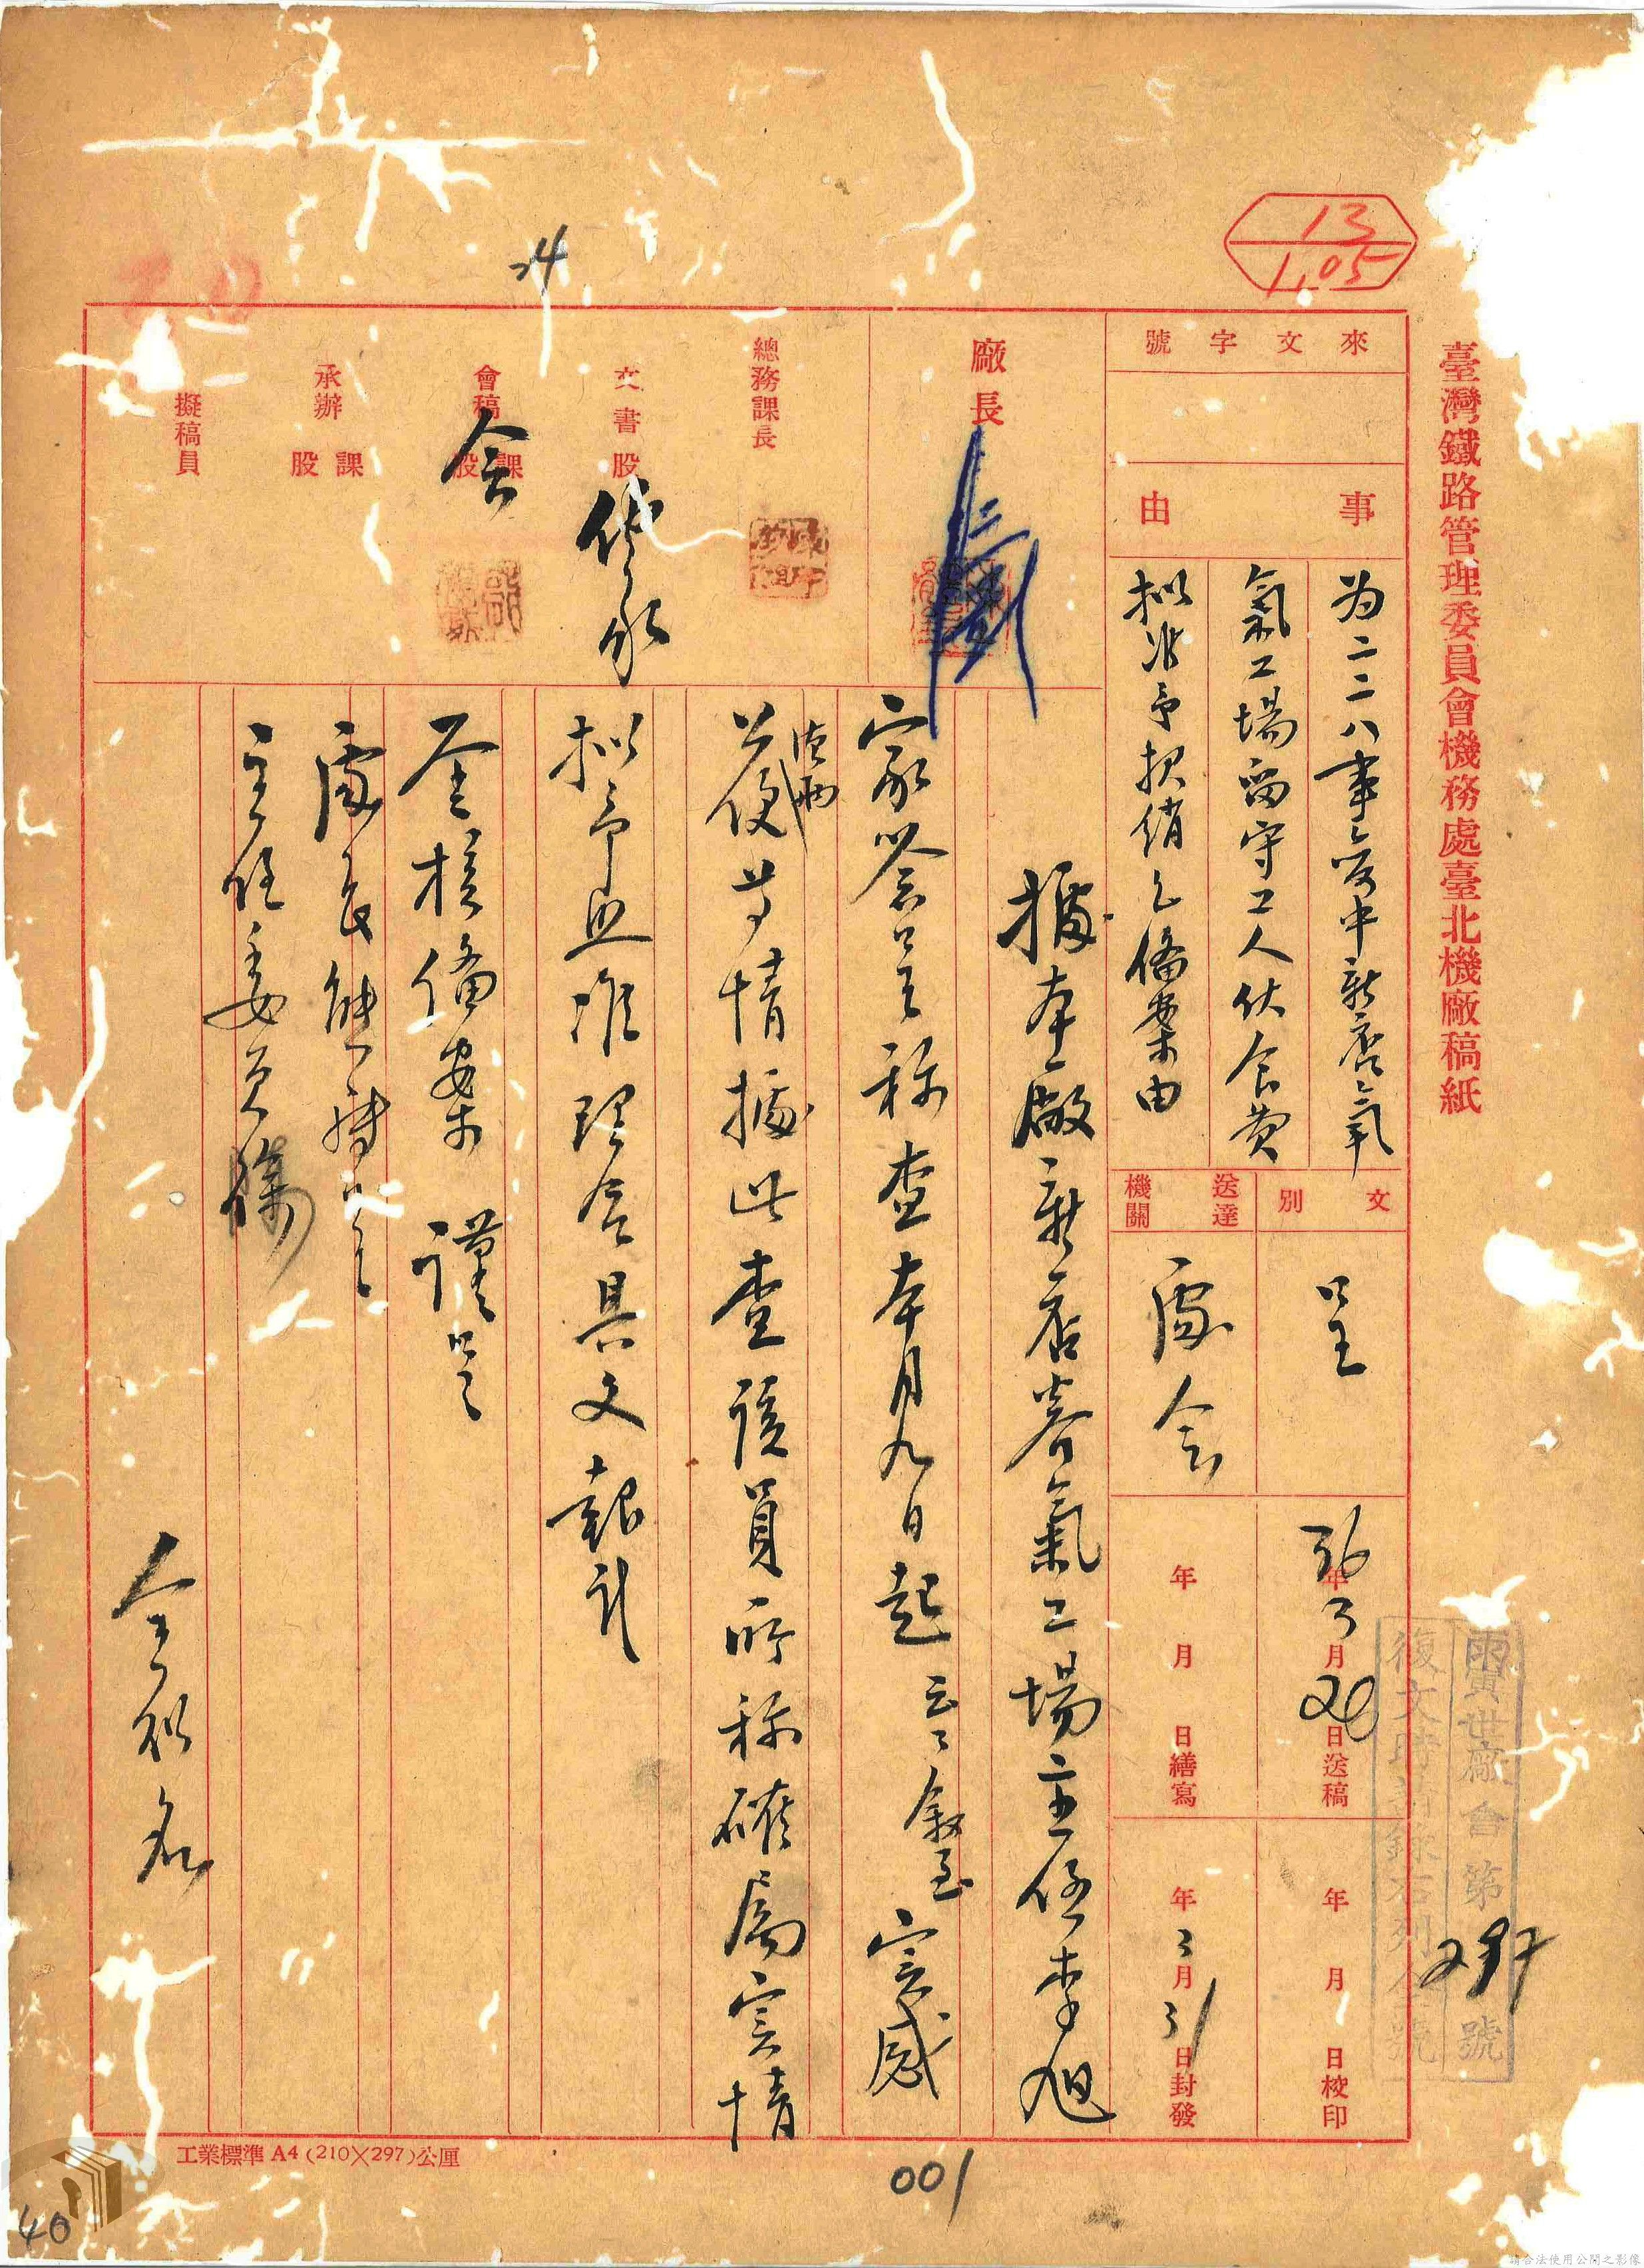 臺灣鐵路管理委員會機務處臺北機廠稿紙
13
1.05
來文字號
事由
为二二八事变中新店氧
氣工場留守工人伙食费
拟准予报銷乞備案由
文別
呈
送達機關
處 会
36年3月28日送稿
年月日繕寫
年月日校印
年3月31日封發
冀世廠會第237號
廠長
總務課長
文書股
會稿課股
会
承辦課股
擬稿員
24
據本廠新店养氣工場主任李旭
家签呈称查本月九日起云云叙至 实感
德便
公便等情據此查該員所称確属实情
拟予照准理合具文報請
鉴核備案 謹呈
處長
主任委員陳
全銜名
工業標準A4(210×297)公厘
001
40
請合法使用公開之影像